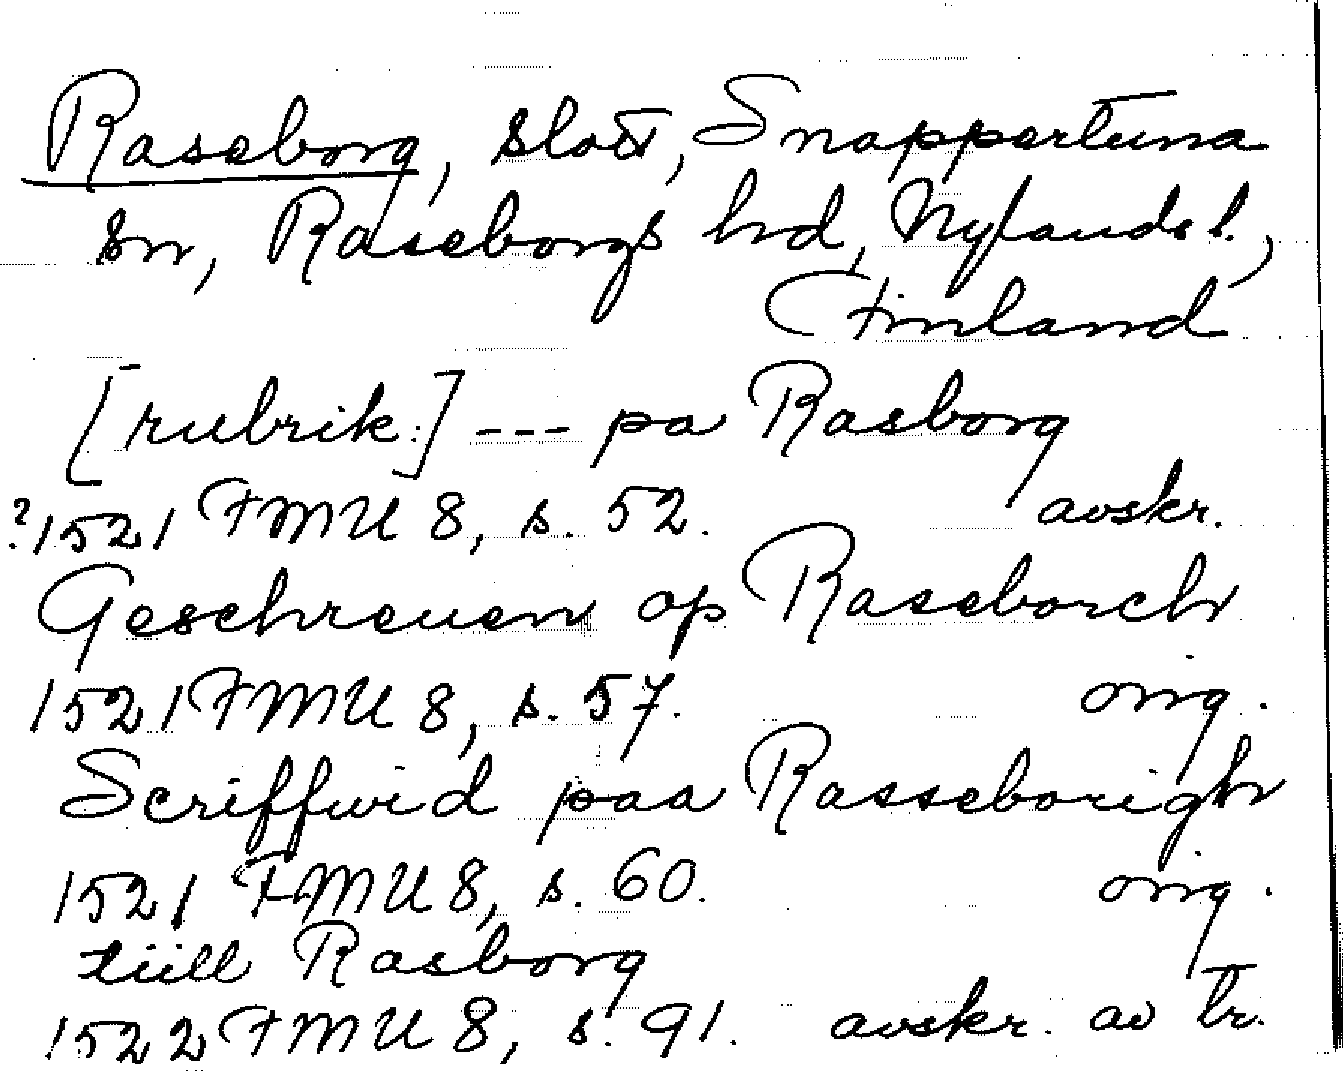 Raseborg, slott, Snappertuna
sn, Raseborgs hd, Nylands l.,
Finland
[rubrik:] --- pa Rasborg
?1521 FMU 8, s. 52. avskr.
Geschreuen op Raseborch
1521 FMU 8, s. 57. orig.
Scriffwid paa Rasseborigh
1521 FMU 8, s. 60. orig.
tiill Rasborg
1522 FMU 8, s. 91. avskr. av tr.